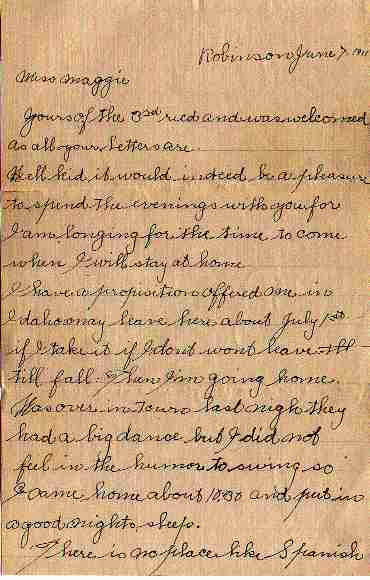 Robinson June 7 1911
Miss Maggie
Yours of the 3rd rec'd and was welcomed
as all your letters are.
Well kid it would indeed be a pleasure
to spend the evenings with you for
I am longing for the time to come
when I will stay at home
I have a proposition offered me in
Idaho may leave here about July 1st
if I take it if I dont wont leave
till fall. Then I'm going home.
Was over in Town last nigh they
had a big dance but I did not
feel in the humor to swing so
I came home about 10:30 and put in
a good nights sleep.
There is no place like Spanish